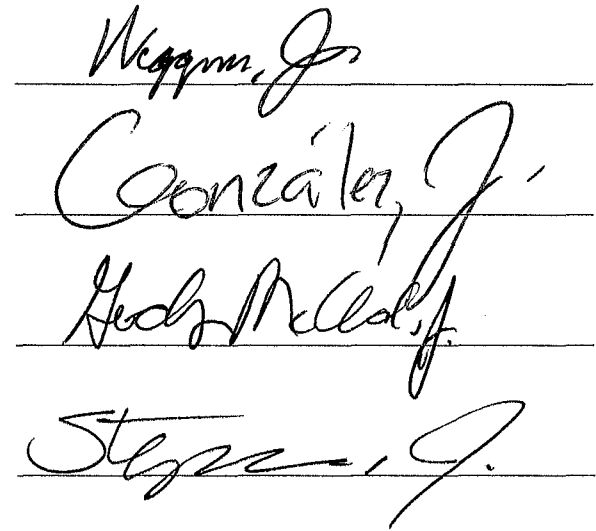 Wiggins, J.
González, J.
Gordon McCloud, J.
Stephens, J.